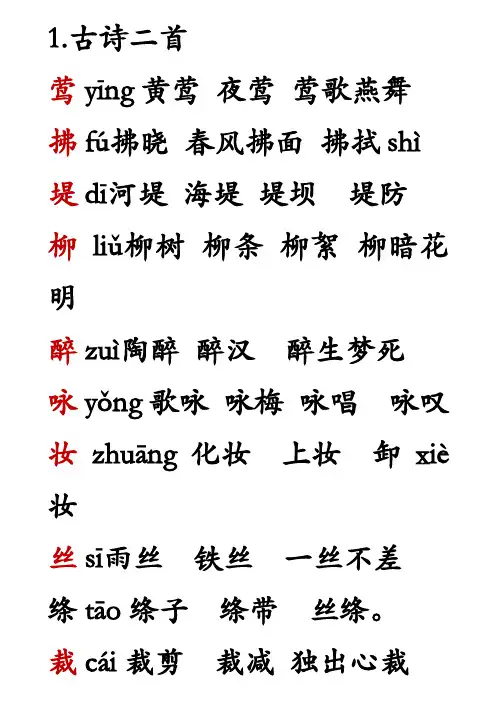 1.古诗二首
莺 yīng 黄莺 夜莺 莺歌燕舞
拂 fú拂晓 春风拂面 拂拭 shì
堤 dī河堤 海堤 堤坝 堤防
柳 liǔ柳树 柳条 柳絮 柳暗花
明
醉 zuì陶醉 醉汉 醉生梦死
咏 yǒng 歌咏 咏梅 咏唱 咏叹
妆 zhuāng 化妆 上妆 卸 xiè
妆
丝 sī雨丝 铁丝 一丝不差
绦 tāo 绦子 绦带 丝绦。
裁 cái 裁剪 裁减 独出心裁